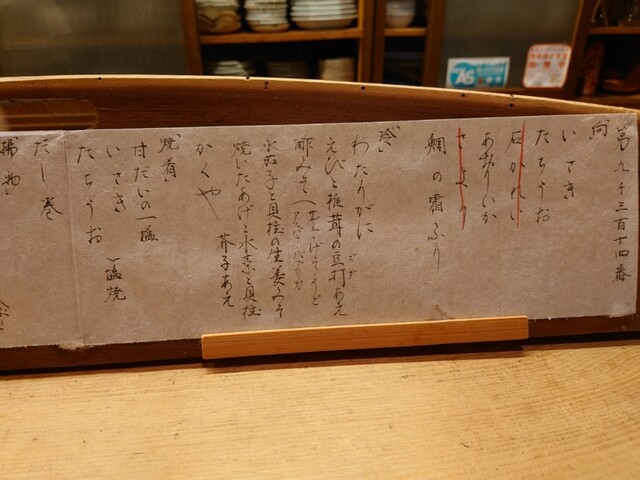 第九千三百十四番
向
いさき
たちうお
石がれい
あおりいか
さより
鯛の霜ふり
冷〻
わたりがに
えびと椎茸の豆打あえ
ズダ
酢みそ
水茄子と貝柱の生姜みそ
焼いたあげと水菜と貝柱
芥子あえ
かくや
焼肴
甘だいの一塩
いさき
たちうお
塩焼
だし巻
揚物
AS